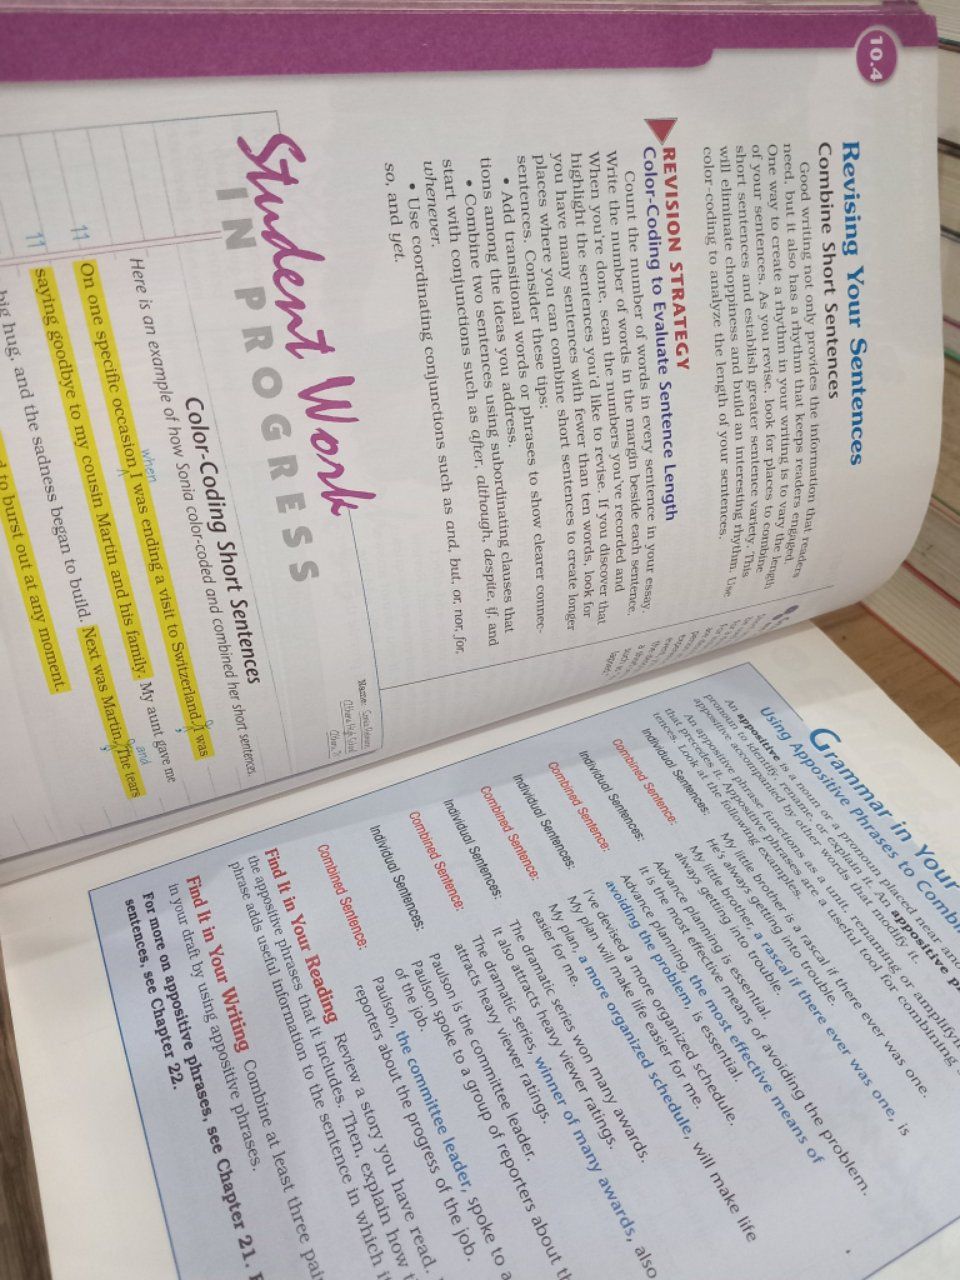 10.4
Revising Your Sentences
Combine Short Sentences
Good writing not only provides the information that readers
need, but it also has a rhythm that keeps readers engaged.
One way to create a rhythm in your writing is to vary the length
of your sentences. As you revise, look for places to combine
short sentences and establish greater sentence variety. This
will eliminate choppiness and build an interesting rhythm. Use
color-coding to analyze the length of your sentences.
REVISION STRATEGY
Color-Coding to Evaluate Sentence Length
Count the number of words in every sentence in your essay.
Write the number of words in the margin beside each sentence.
When you're done, scan the numbers you've recorded and
highlight the sentences you'd like to revise. If you discover that
you have many sentences with fewer than ten words, look for
places where you can combine short sentences to create longer
sentences. Consider these tips:
• Add transitional words or phrases to show clearer connec-
tions among the ideas you address.
• Combine two sentences using subordinating clauses that
start with conjunctions such as after, although, despite, if, and
whenever.
• Use coordinating conjunctions such as and, but, or, nor, for,
so, and yet.
Student Work
IN PROGRESS
Name:
Color-Coding Short Sentences
Here is an example of how Sonia color-coded and combined her short sentences.
when
11 On one specific occasion, I was ending a visit to Switzerland. I was
11 saying goodbye to my cousin Martin and his family. My aunt gave me
and
big hug, and the sadness began to build. Next was Martin. The tears
to burst out at any moment.
Grammar in Your
Using Appositive Phrases to Combin
An appositive is a noun or a pronoun placed near
pronoun to identify, rename, or explain it. An appositive
appositive accompanied by other words that modify it.
An appositive phrase functions as a unit, renaming or amplifyi
that precedes it. Appositive phrases are a useful tool for combining
tences. Look at the following examples.
Individual Sentences: My little brother is a rascal if there ever was one.
He's always getting into trouble.
Combined Sentence: My little brother, a rascal if there ever was one, is
always getting into trouble.
Individual Sentences: Advance planning is essential.
It is the most effective means of avoiding the problem.
Combined Sentence: Advance planning, the most effective means of
avoiding the problem, is essential.
Individual Sentences: I've devised a more organized schedule.
My plan will make life easier for me.
Combined Sentence: My plan, a more organized schedule, will make life
easier for me.
Individual Sentences: The dramatic series won many awards.
It also attracts heavy viewer ratings.
Combined Sentence: The dramatic series, winner of many awards, also
attracts heavy viewer ratings.
Individual Sentences: Paulson is the committee leader.
Paulson spoke to a group of reporters about th
of the job.
Combined Sentence: Paulson, the committee leader, spoke to a
reporters about the progress of the job.
Find It in Your Reading Review a story you have read.
the appositive phrases that it includes. Then, explain how
phrase adds useful information to the sentence in which it
Find It in Your Writing Combine at least three pai
in your draft by using appositive phrases.
For more on appositive phrases, see Chapter 21.
sentences, see Chapter 22.